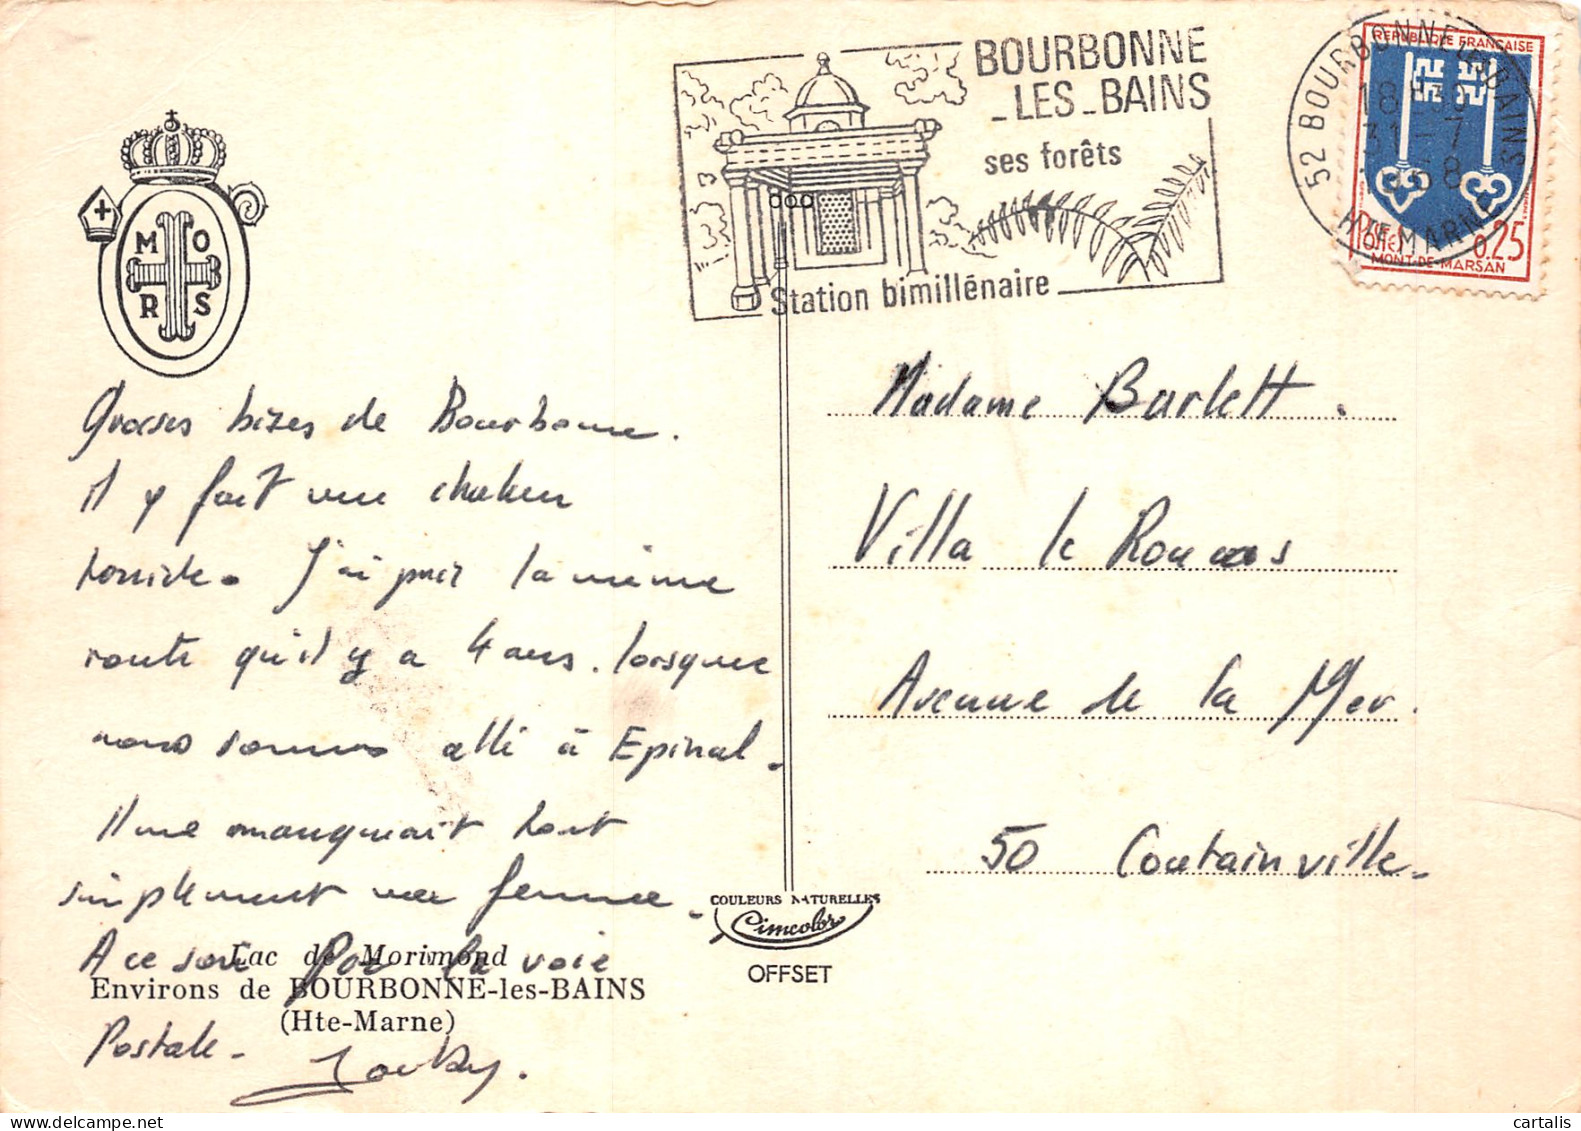 BOURBONNE
_LES_BAINS
ses forêts
Station bimillénaire
52 BOURBONNE LES BAINS
18
31 - 7
68
HTE MARNE
REPUBLIQUE FRANÇAISE
0,25
MONT-DE-MARSAN
M O
R S
Grosses bizes de Bourbonne.
il y fait une chaleur
torride. J'ai pris la même
route qu'il y a 4 ans. lorsque
nous sommes allé à Epinal.
Il me manquait tout
simplement ma femme.
A ce soir Par la voie
Postale.
Lac de Morimond
Environs de BOURBONNE-les-BAINS
(Hte-Marne)
COULEURS NATURELLES
Cimcolor
OFFSET
Madame Barlett.
Villa le
Avenue de la Mer.
50 Coutainville.
www.delcampe.net
cartalis